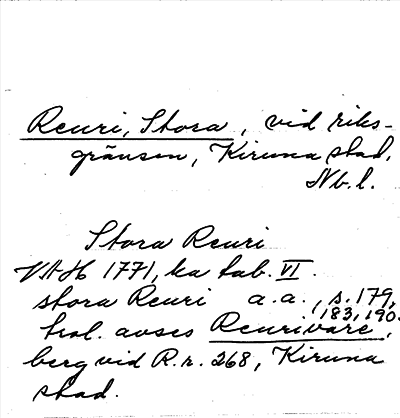 Reuri, Stora, vid riks-
gränsen, Kiruna stad.
Nb.l.
Stora Reuri
VAH 1771, ka tab. VI.
stora Reuri a.a., s. 179,
183, 190.
trol. avses Reurivare,
berg vid R.r. 268, Kiruna
stad.